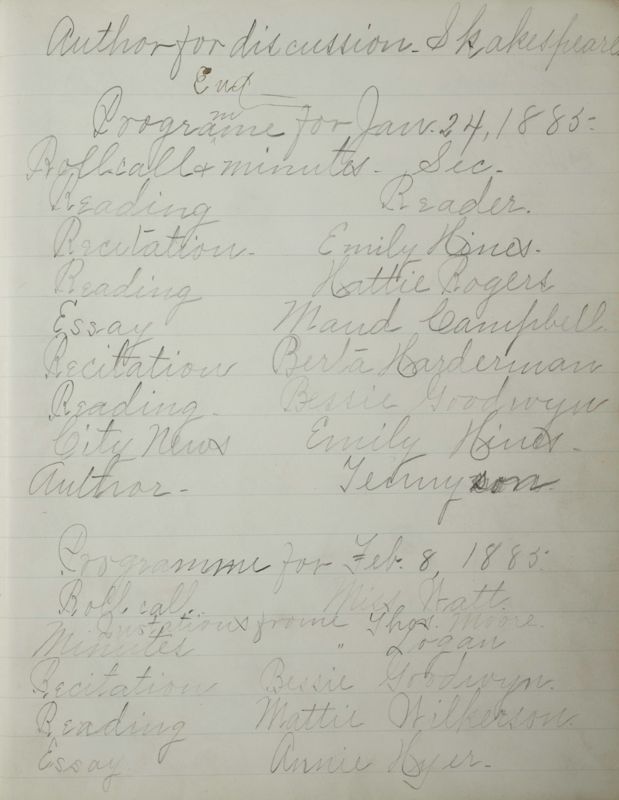 Author for discussion. Shakespeare
End
Programme for Jan. 24, 1885.
Roll call & minutes. Sec.
Reading Reader.
Recitation. Emily Hines.
Reading Hattie Rogers
Essay Maud Campbell.
Recitation Berta Harderman
Reading. Bessie Goodwyn
City News Emily Hines.
Author. Tennyson.
Programme for Feb. 8, 1885.
Roll. call. Miss Hatt.
Quotations frome Thos. Moore.
Minutes " Logan
Recitation Bessie Goodwyn.
Reading Mattie Wilkerson.
Essay Annie Hyer.